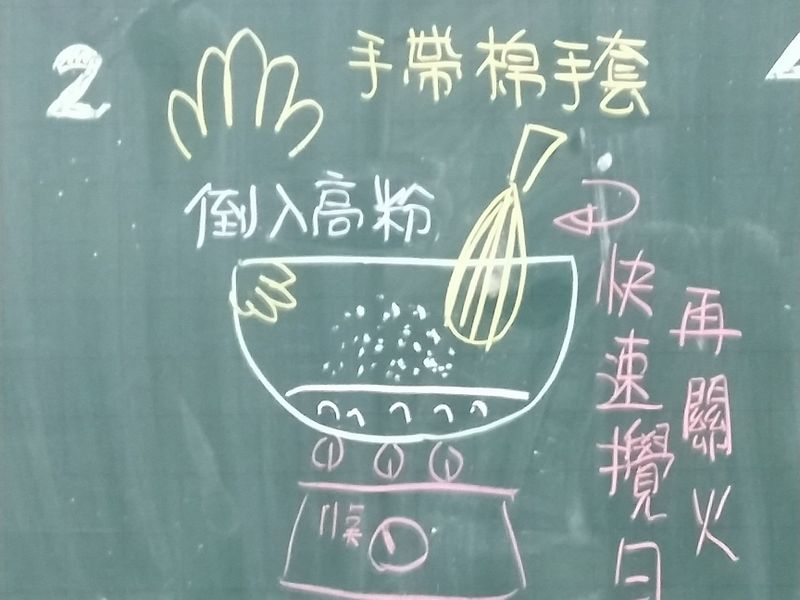 2
手帶棉手套
倒入高粉
快速攪勻
再關火